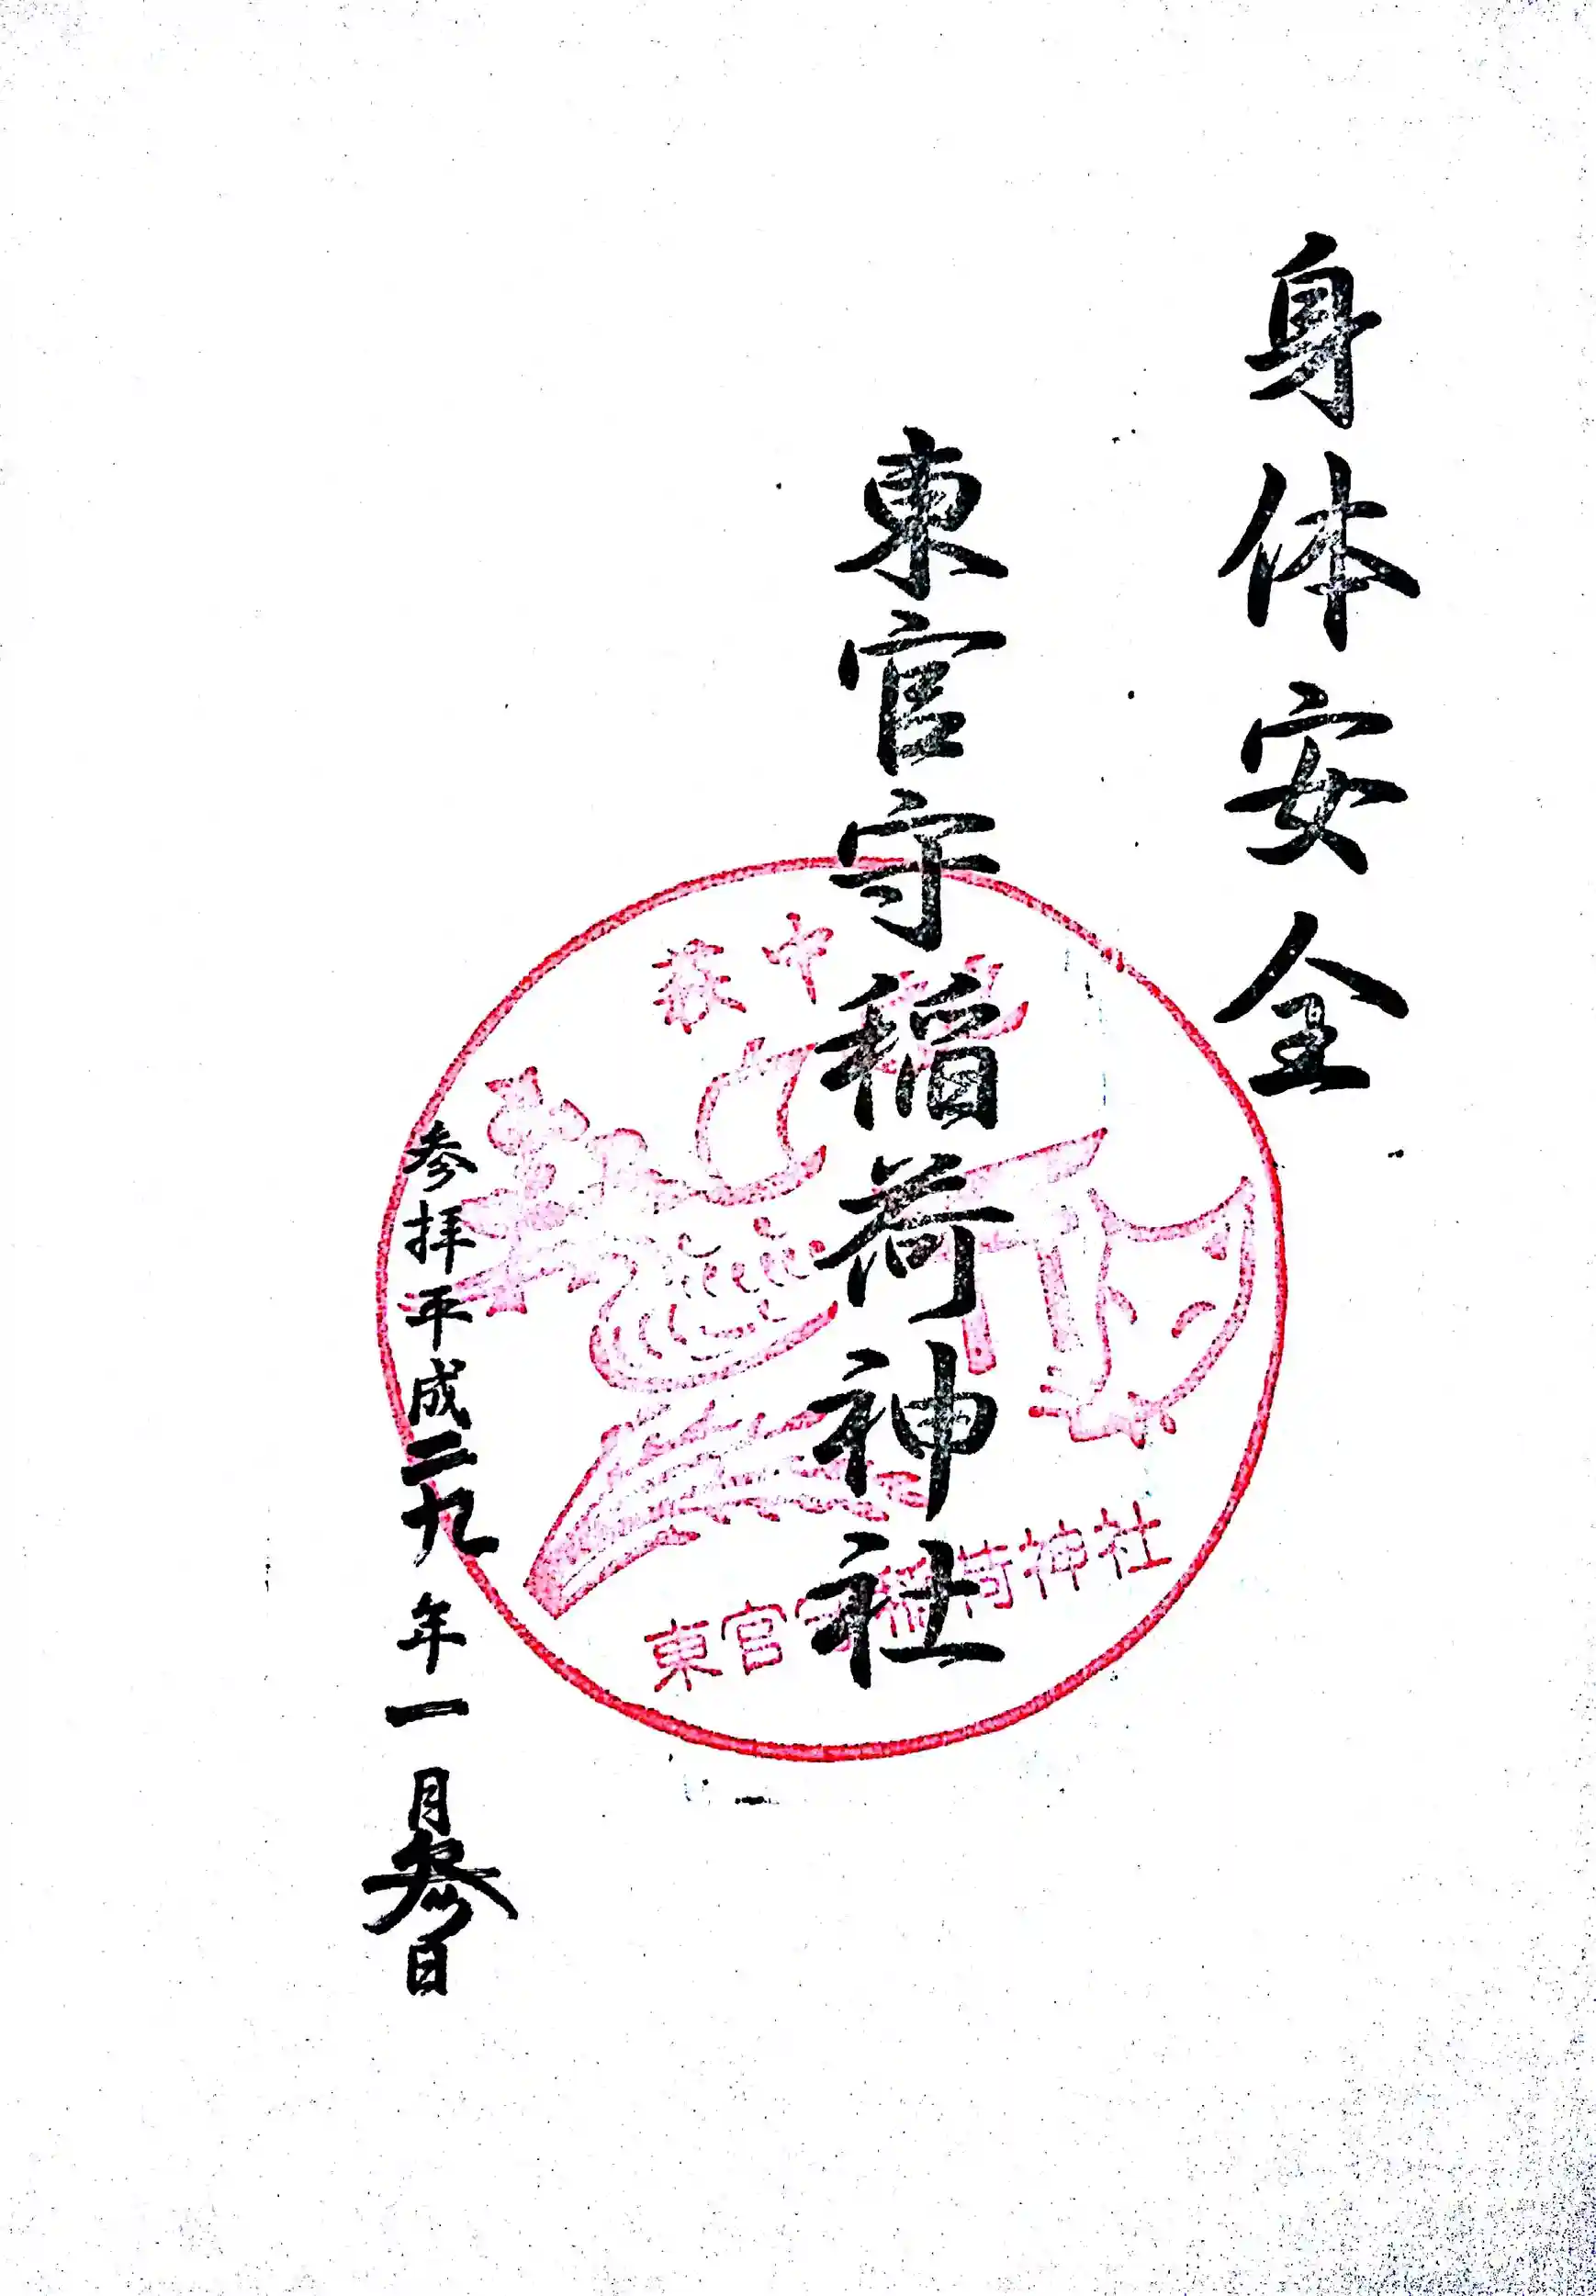 身体安全
東官守稲荷神社
参拝平成二九年一月参日
萩中
東官守稲荷神社